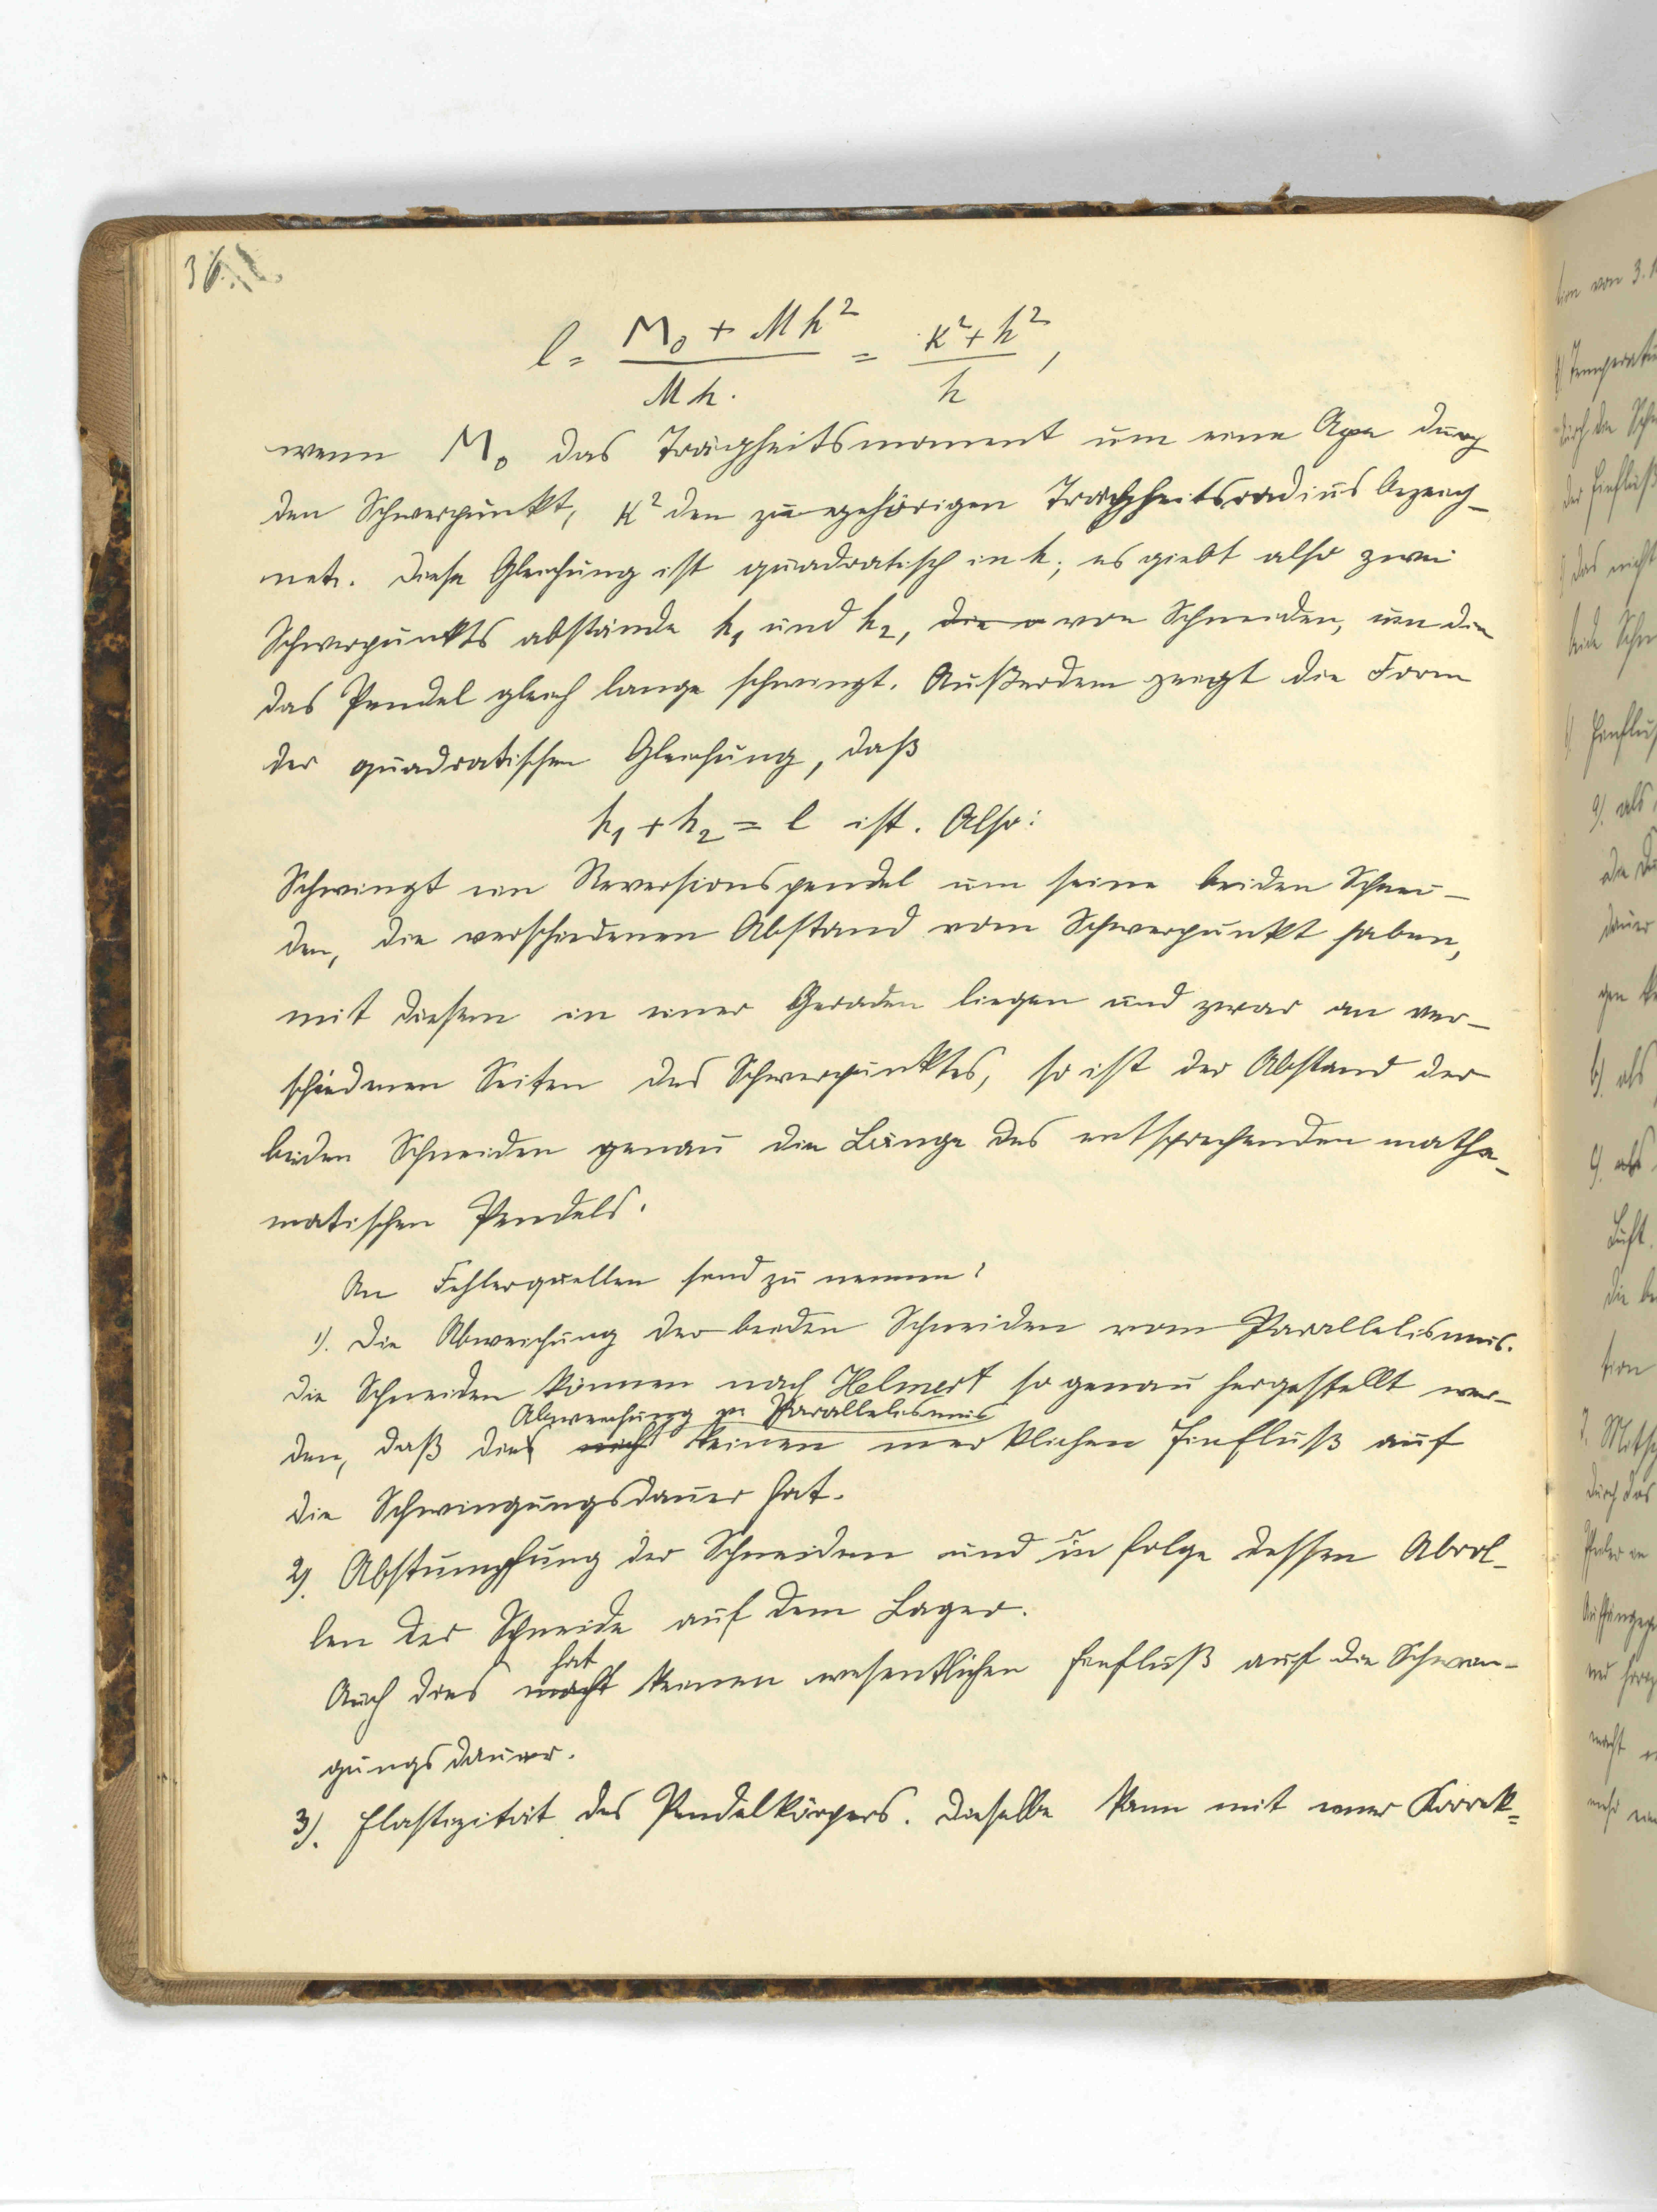 36.
l = (M₀ + Mh²) / (Mh.) = (K² + h²) / h ,
wenn M₀ das Trägheitsmoment um eine Axe durch
den Schwerpunkt, K² den zugehörigen Trägheitsradius bezeich-
net. Diese Gleichung ist quadratisch in h; es giebt also zwei
Schwerpunktsabstände h₁ und h₂, von Schneiden, um die
das Pendel gleich lange schwingt. Außerdem zeigt die Form
der quadratischen Gleichung, daß
h₁ + h₂ = l ist. Also:
Schwingt ein Reversionspendel um seine beiden Schnei-
den, die verschiedenen Abstand vom Schwerpunkt haben,
mit diesem in einer Geraden liegen und zwar an ver-
schiedenen Seiten des Schwerpunktes, so ist der Abstand der
beiden Schneiden genau die Länge des entsprechenden mathe-
matischen Pendels.
An Fehlerquellen sind zu nennen:
1). Die Abweichung der beiden Schneiden vom Parallelismus.
Die Schneiden können nach Helmert so genau hergestellt wer-
Abweichung v. Parallelismus
den, daß die nicht keinen merklichen Einfluß auf
die Schwingungsdauer hat.
2). Abstumpfung der Schneiden und in folge dessen Abrol-
len der Schneide auf dem Lager.
hat
Auch dies macht keinen wesentlichen Einfluß auf die Schwin-
gungsdauer.
3). Elastizität des Pendelkörpers. Dieselbe kann mit einer Korrek-
tion von 3.
Temperatu
durch die Schw
der Einfluß
das nicht
beide Schn
Einfluß
a). als
die Du
dauer
gen
b). als
c). als
Luft.
die be
tion
7. Mitsch
durch das
macht
mehr